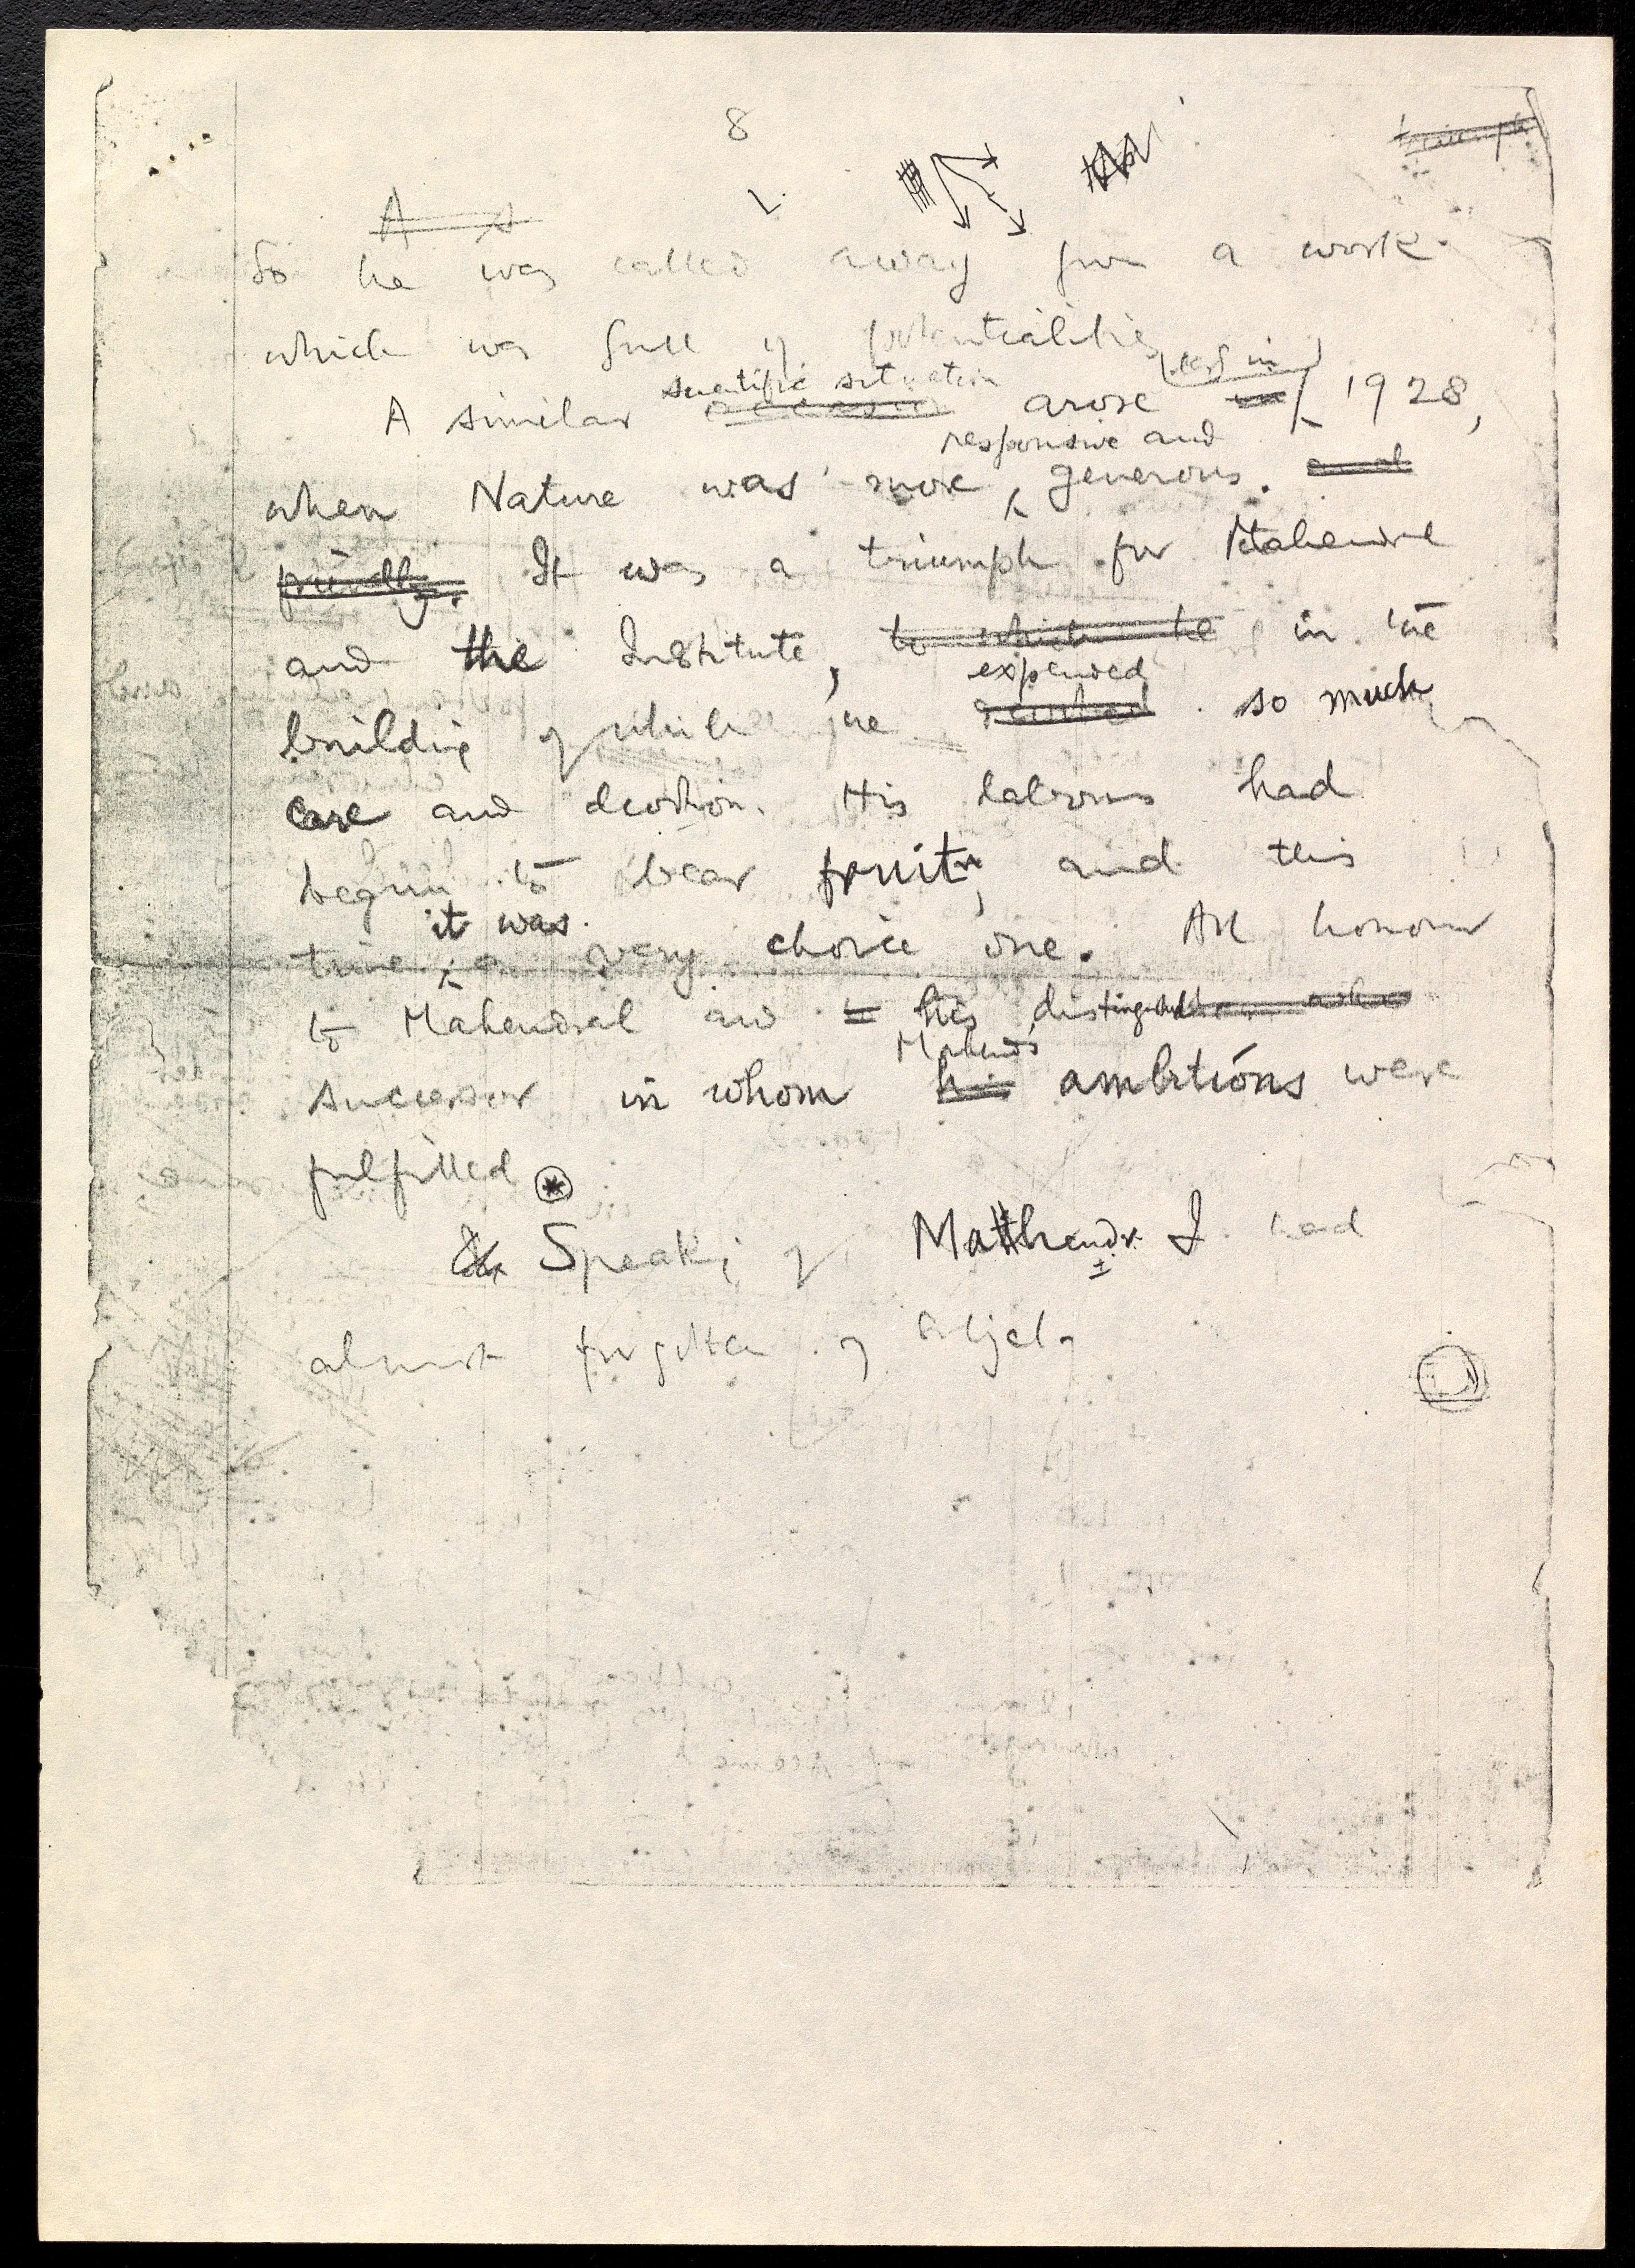 8
triumph
A s
So he was called away from a work
which was full of potentialities
scientific situation
A similar occasion arose in 1928,
responsive and
when Nature was more generous. and
friendly. It was a triumph for Mahendra
and the Institute, to which he in the
expended
building of which he devoted so much
care and devotion. His labours had
begun to bear fruit, and this
it was
time a very choice one. All honour
to Mahendralal and to his distinguished
Mahendra's
successor in whom his ambitions were
fulfilled *
Speaking of Mahendra I had
almost forgotten of